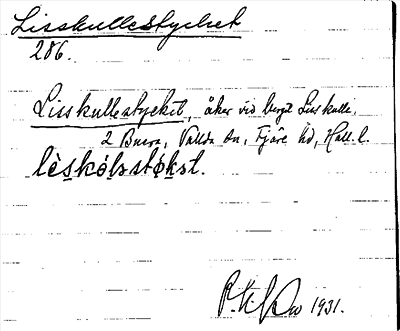 Lisskullestycket
206.
Lisskullestycket, åker vid berget Lisskulle.
2 Buera, Vallda sn, Fjäre hd, Hall. l.
lèskølsstøkst.
1931.